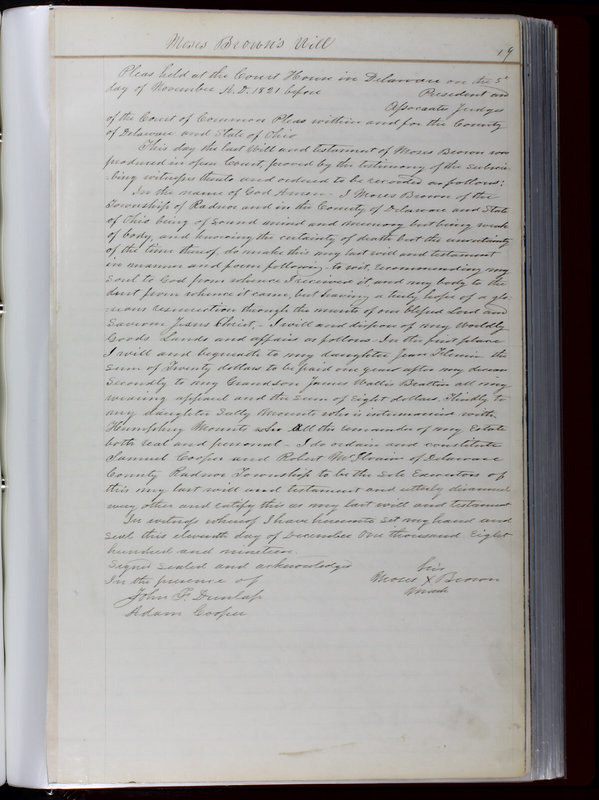 Moses Brown's Will
19
Pleas held at the Court House in Delaware on the 5th
day of November A.D. 1821 before President and
Associate Judges
of the Court of Common Pleas within and for the County
of Delaware and State of Ohio
This day the last Will and testament of Moses Brown was
produced in open Court, proven by the testimony of the subscri-
bing witnesses thereto and ordered to be recorded as follows:
In the name of God Amen - I Moses Brown of the
Township of Radnor and in the County of Delaware and State
of Ohio being of sound mind and memory but being weak
of body, and knowing the certainty of death but the uncertainty
of the time thereof, do make this my last will and testament
in manner and form following, to wit, recommending my
soul to God from whence I received it, and my body to the
dust from whence it came, but having a lively hope of a glo-
rious resurrection through the merits of our Blessed Lord and
Saviour Jesus Christ, - I will and dispose of my Worldly
Goods Lands and affairs as follows - In the first place
I will and bequeath to my daughter Jean the
sum of Twenty dollars to be paid one year after my decease
Secondly to my Grandson James Wallis Beattie all my
wearing apparel and the sum of Eight dollars, Thirdly to
my daughter Sally Mounts who is intermarried with
Humphrey Mounts all the remainder of my Estate
both real and personal - I do ordain and constitute
Samuel Cooper and Robert McIlvain of Delaware
County Radnor Township to be the sole Executors of
this my last will and testament and utterly disannul
every other and ratify this as my last will and testament
In witness whereof I have hereunto set my hand and
seal this eleventh day of December One thousand Eight
hundred and nineteen.
Signed sealed and acknowledged his
In the presence of Moses X Brown
John F. Dunlap mark
Adam Cooper